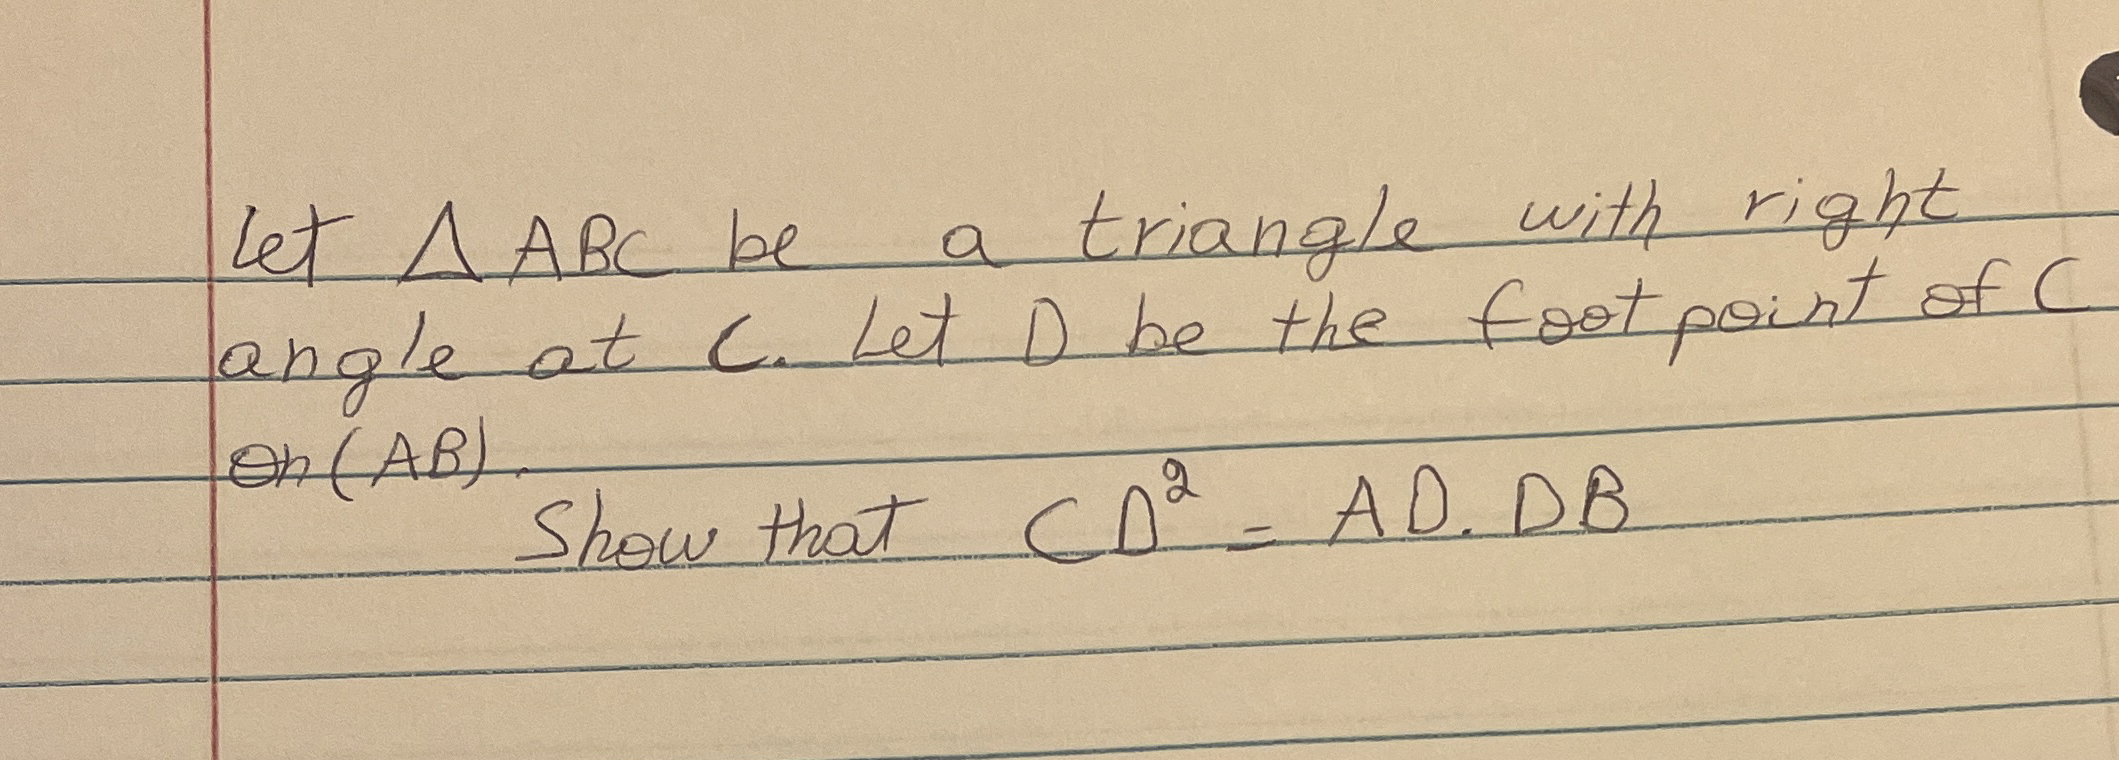 Let △ ABC be a triangle with right
angle at C. Let D be the foot point of C
on (AB).
Show that CD² = AD. DB